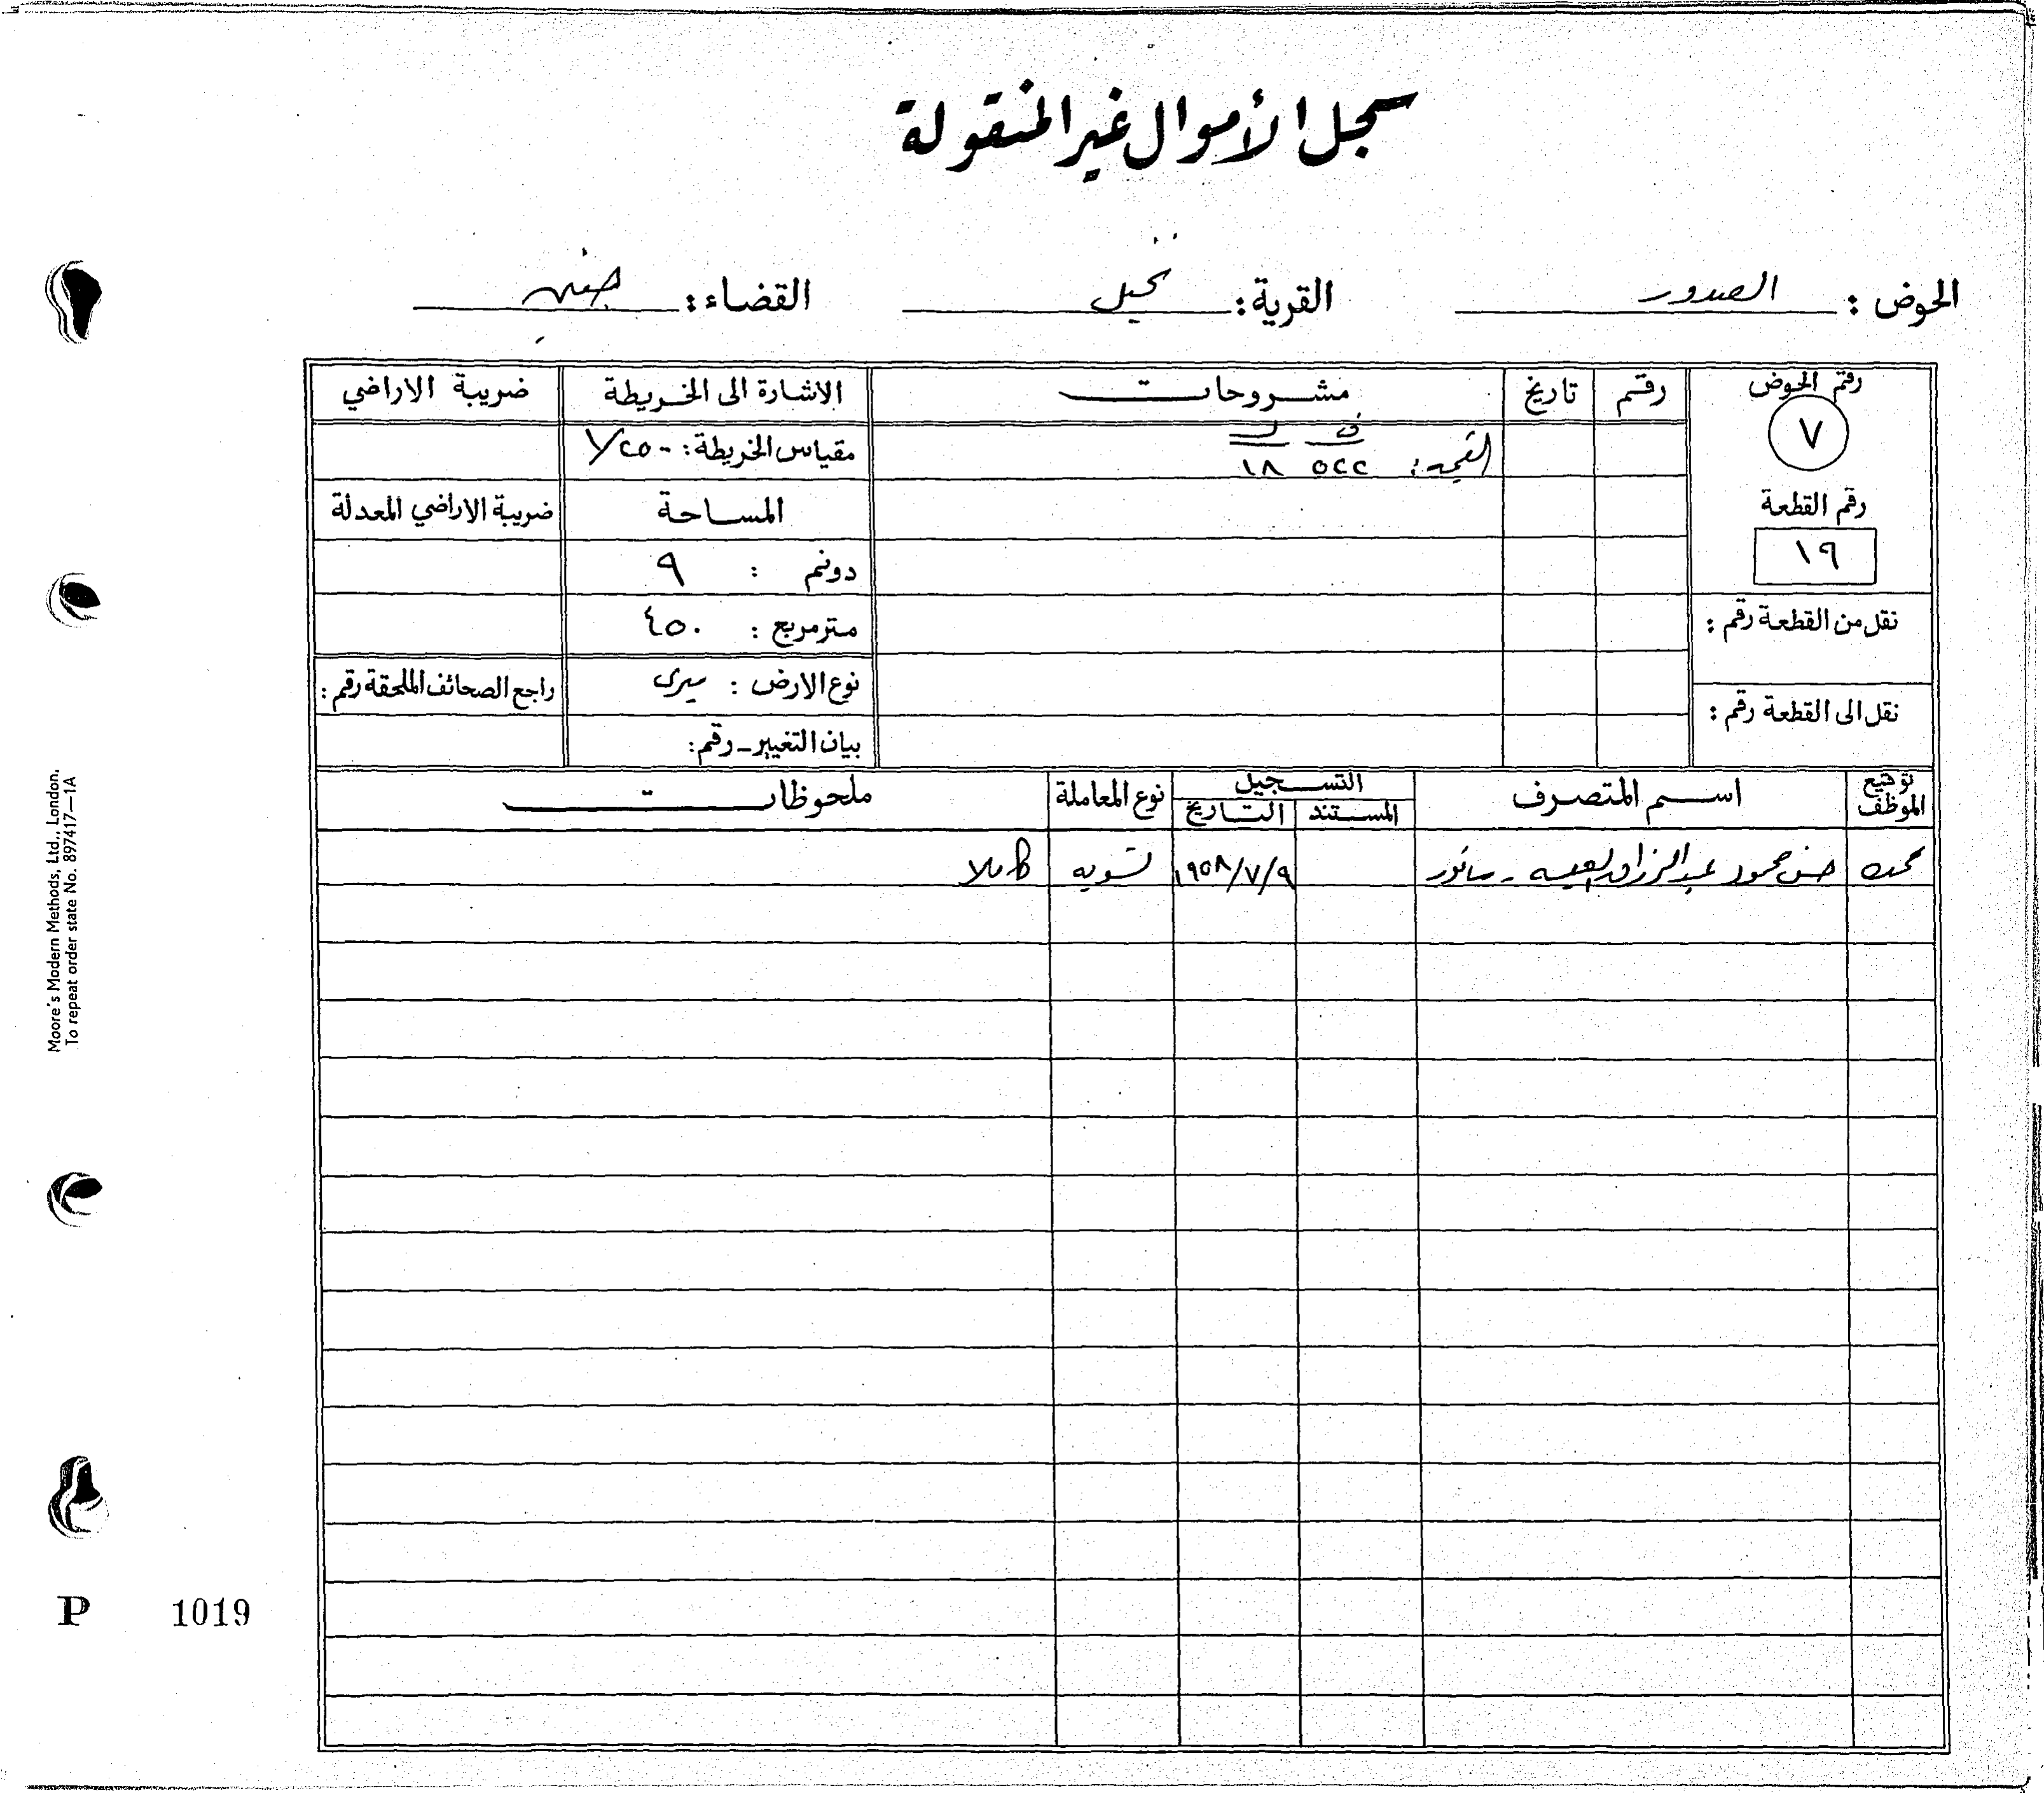 سجل الأموال غير المنقولة
الحوض : الصدور القرية : نحيل القضاء : جنين
رقم الحوض رقم تاريخ مشروحات الاشارة الى الخريطة ضريبة الاراضي
٧ القيمة : ف ل مقياس الخريطة : ١/٢٥٠٠
٥٢٢ ١٨
رقم القطعة المساحة ضريبة الاراضي المعدلة
١٩ دونم : ٩
نقل من القطعة رقم : متر مربع : ٤٥٠
نوع الارض : ميري راجع الصحائف الملحقة رقم :
نقل الى القطعة رقم : بيان التغيير - رقم :
توقيع الموظف اسم المتصرف التسجيل نوع المعاملة ملحوظات
المستند التاريخ
حسن محمود عبد الرزاق العيسه - سانور ١٩٥٨/٧/٩ تسويه كاملا
Moore's Modern Methods, Ltd., London.
To repeat order state No. 897417—1A
P 1019